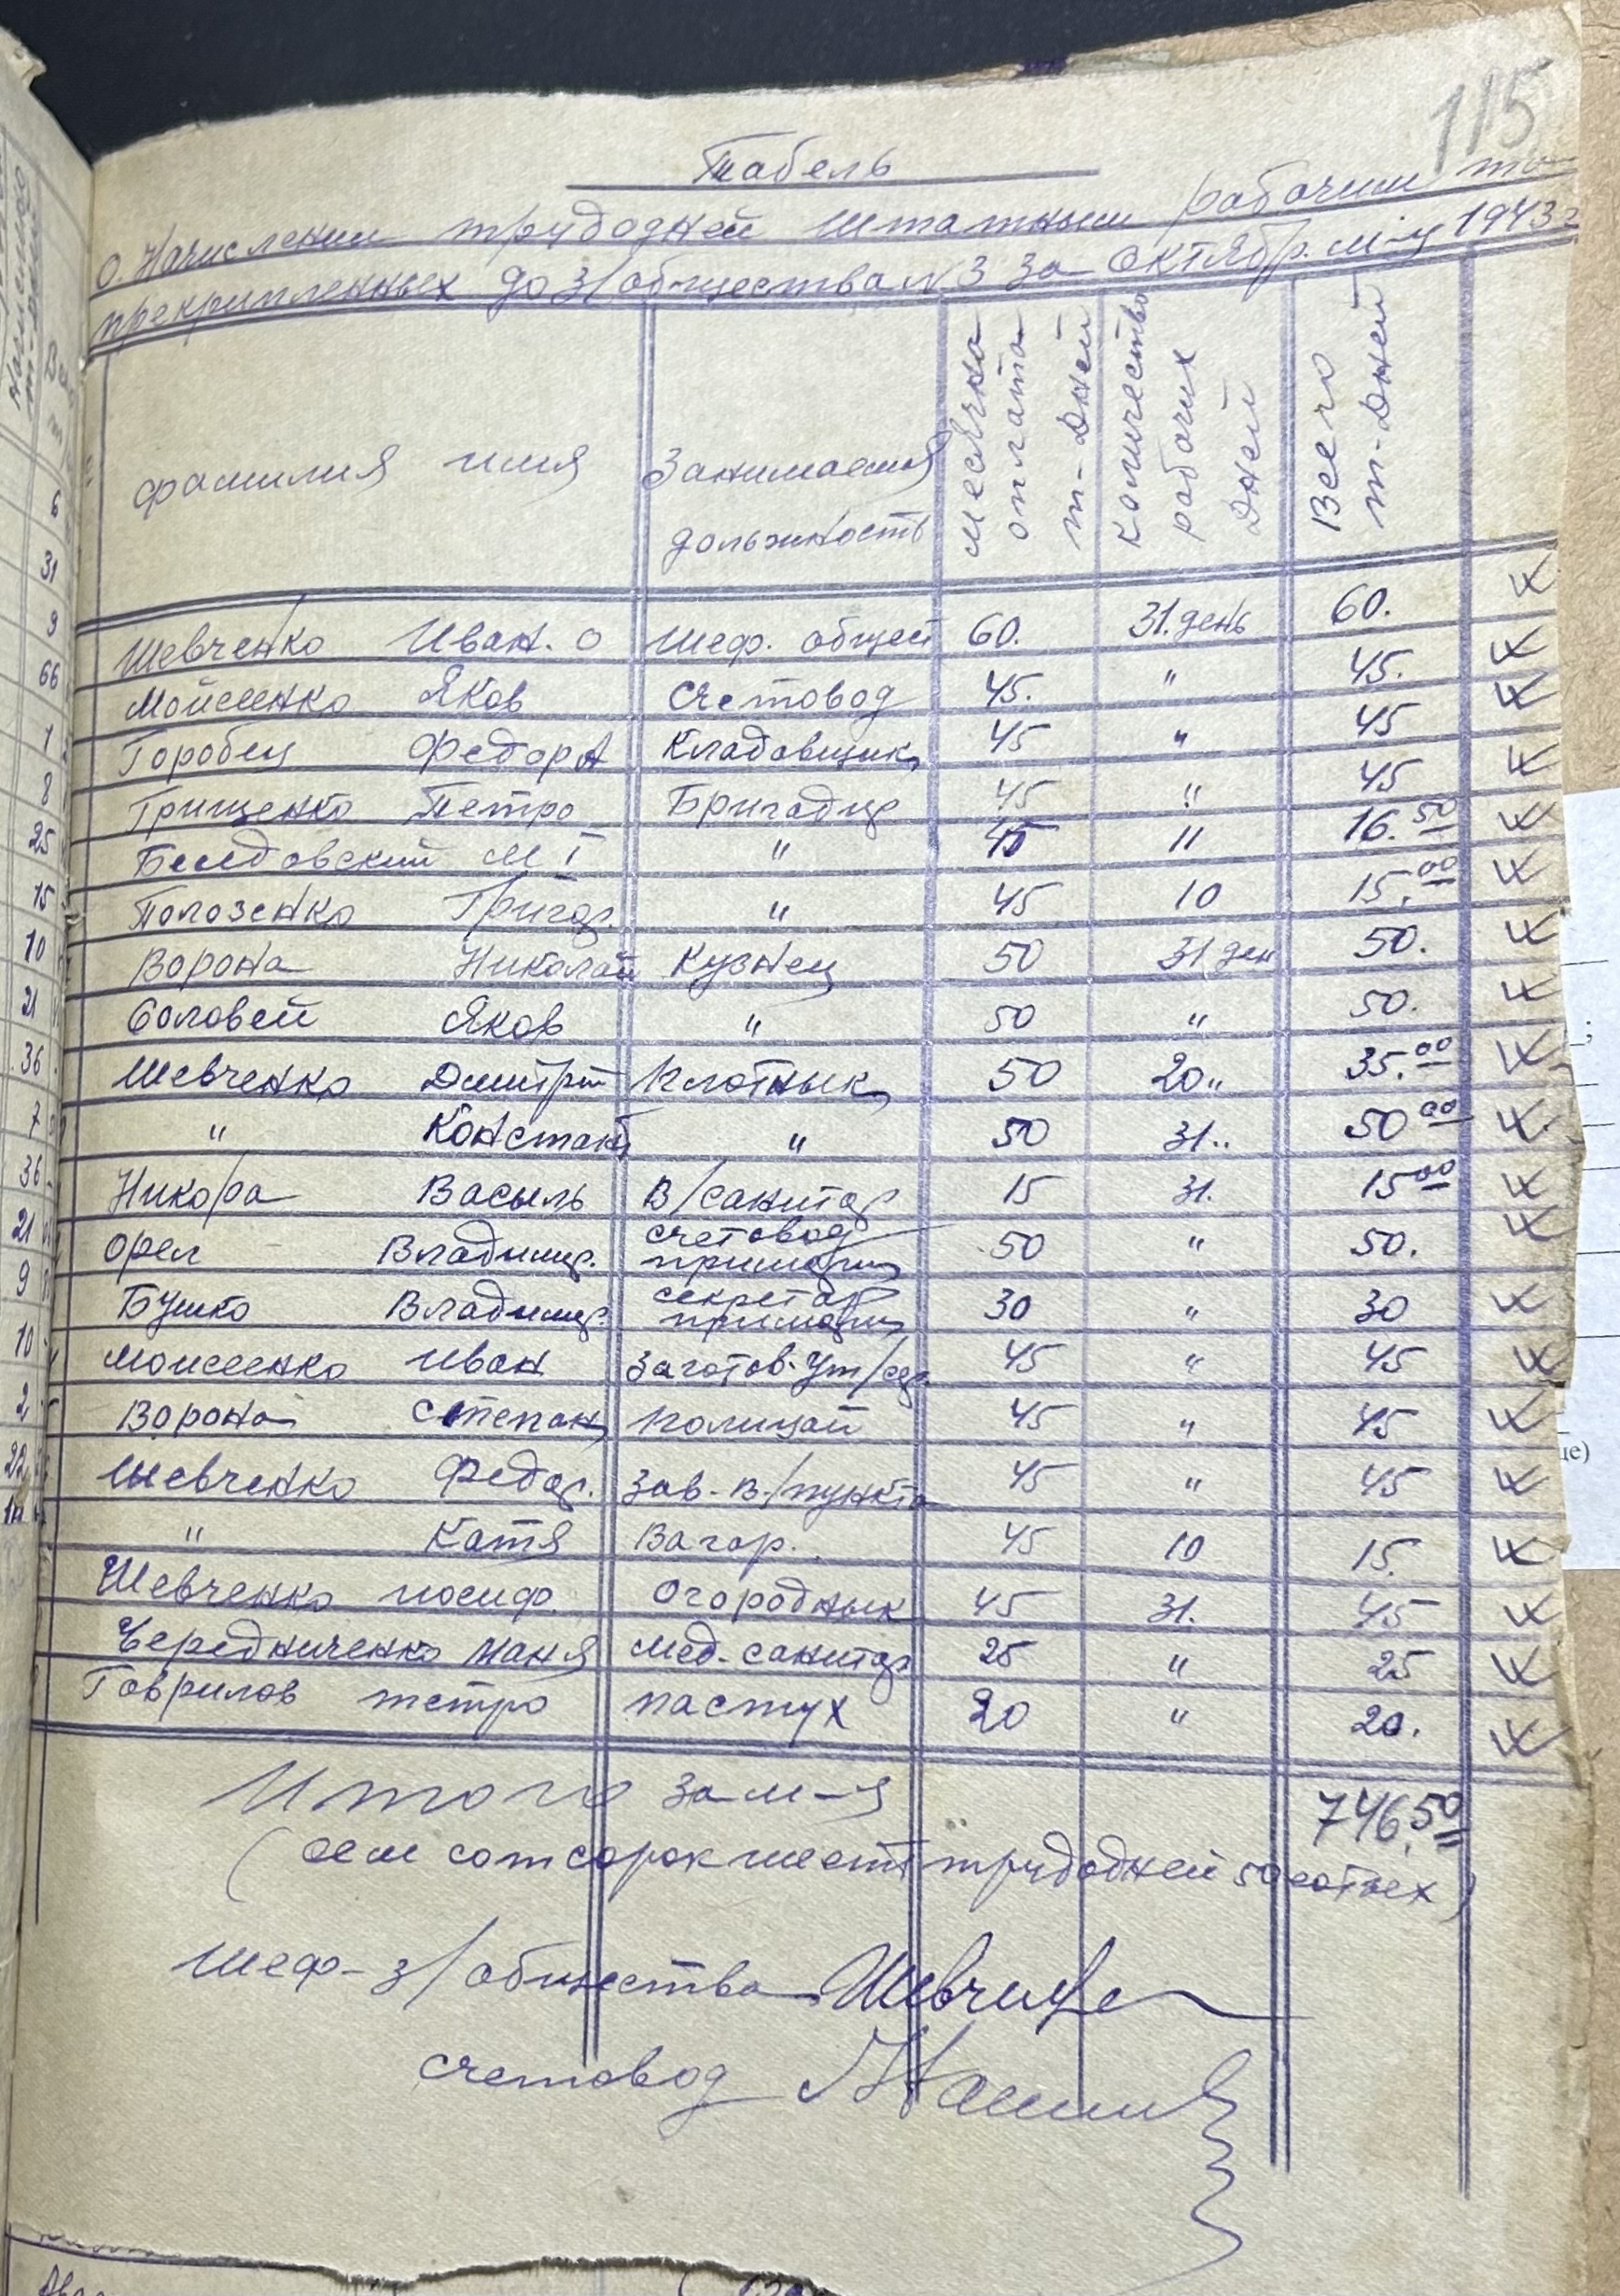 115
Табель
О. Начислении трудодней штатным рабочим
прекрипленных до з/общества N 3 За октябр. м-ц 1943 г
Фамилия имя Занимаемая должность месячна оплата т-дней Количество рабочих дней Всего т-дней
Шевченко Иван. О Шеф. общей 60. 31. день 60.
Мойсеенко Яков Счетовод 45. " 45.
Горобец Федор А Кладовщик 45 " 45
Грищенко Петро Бригадир 45 " 45
М I " 45 11 16.50
Полозенко Григор. " 45 10 15.00
Ворона Николай Кузнец 50 31 ден 50.
Соловей Яков " 50 " 50.
Шевченко Дмитрий Плотнык 50 20 " 35.00
" Констант " 50 31 " 50 00
Никора Васыль В/санитар 15 31. 15 00
Орел Владимир. счетовод примарии 50 " 50.
Бушко Владимир. секретар примарии 30 " 30
Моисеенко Иван Заготов. 45 " 45
Ворона Степан Полицай 45 " 45
Шевченко Федор. Зав. в/пункта 45 " 45
" Катя Вагар. 45 10 15.
Шевченко иосиф. Огородник 45 31. 45
Чередниченко Маня Мед-санитар 25 " 25
Гаврилов петро пастух 20 " 20.
Итого за м-ц 746.50
(сем сот сорок шест трудодней 50 сотых)
Шеф-з/общества
счетовод